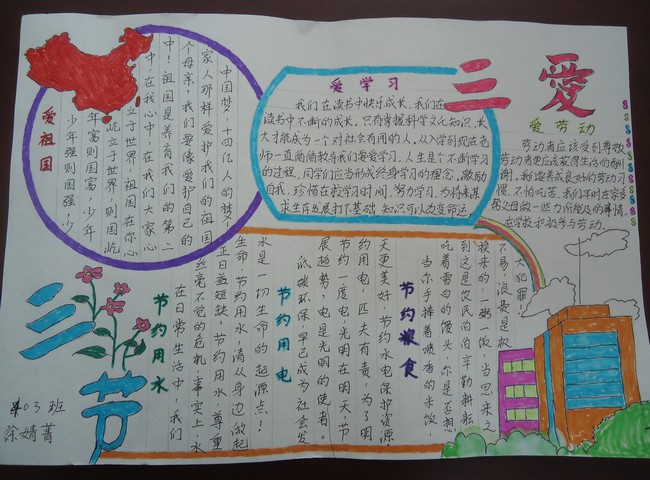 三愛
爱学习
我们在读书中快乐成长,我们在
读书中不断的成长。只有掌握科学文化知识,长
大才能成为一个对社会有用的人。从入学到现在老
师一直简简教导我们要爱学习。人生是个不断学习
的过程,同学们应当形成终身学习的理念,激励
自我,珍惜在校学习时间,努力学习,为将来谋
求生存发展打下基础,知识可以改变命运。
爱劳动
劳动者应该受到尊敬,
劳动者更应该获得生活的酬
谢。我们
惯,不怕吃苦。我们平时在家多
帮父母做一些力所能及的事情,
在学校积极参与劳动。
爱祖国
中国梦,十四亿人的梦,
家人那样爱护我们的祖国
个母亲,我们要像爱护自己的
中!祖国是养育我们的第二
中,在我心中,在我们大家心
立于世界,祖国在你心
屹立于世界,则国屹
年富则国富,少年
少年强则国强,少
三节
节约用水
在日常生活中,我们
丝毫不觉的危机,事实上,水
正日益短缺,节约用水,尊重
生命,节约用水,请从身边做起
水是一切生命的起源点!
节约用电
低碳环保,早已成为社会发
展趋势,电是光明的使者。
节约一度电,光明在明天,节
约用电,匹夫有责,为了明
天更美好,节约水电保护资源。
节约粮食
当你手捧着喷香的米饭,
吃着雪白的馒头,你是否想
到这是农民伯伯辛勤耕耘
换来的,一粥一饭,当思来之
不易,浪费是极
大犯罪。
403班
涂婧菁